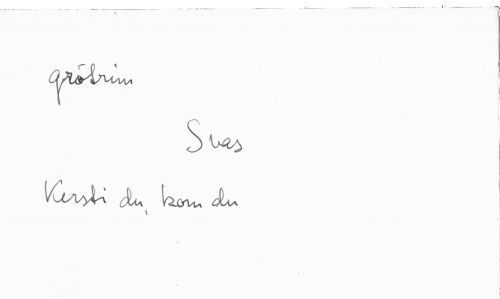 grötrim
Svas
Kersti du, kom du